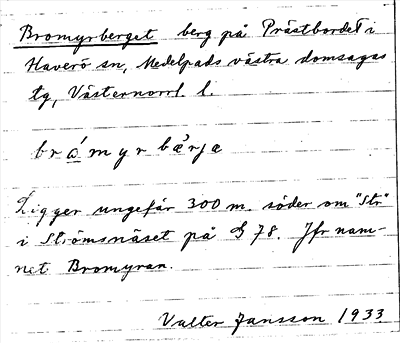 Bromyrberget berg på Prästbordet i
Haverö sn, Medelpads västra domsagas
tg, Västernorrl. l.
brǻmyrbærja
Ligger ungefär 300 m. söder om "Str"
i Strömsnäset på G 78. Jfr nam-
net Bromyran.
Valter Jansson 1933